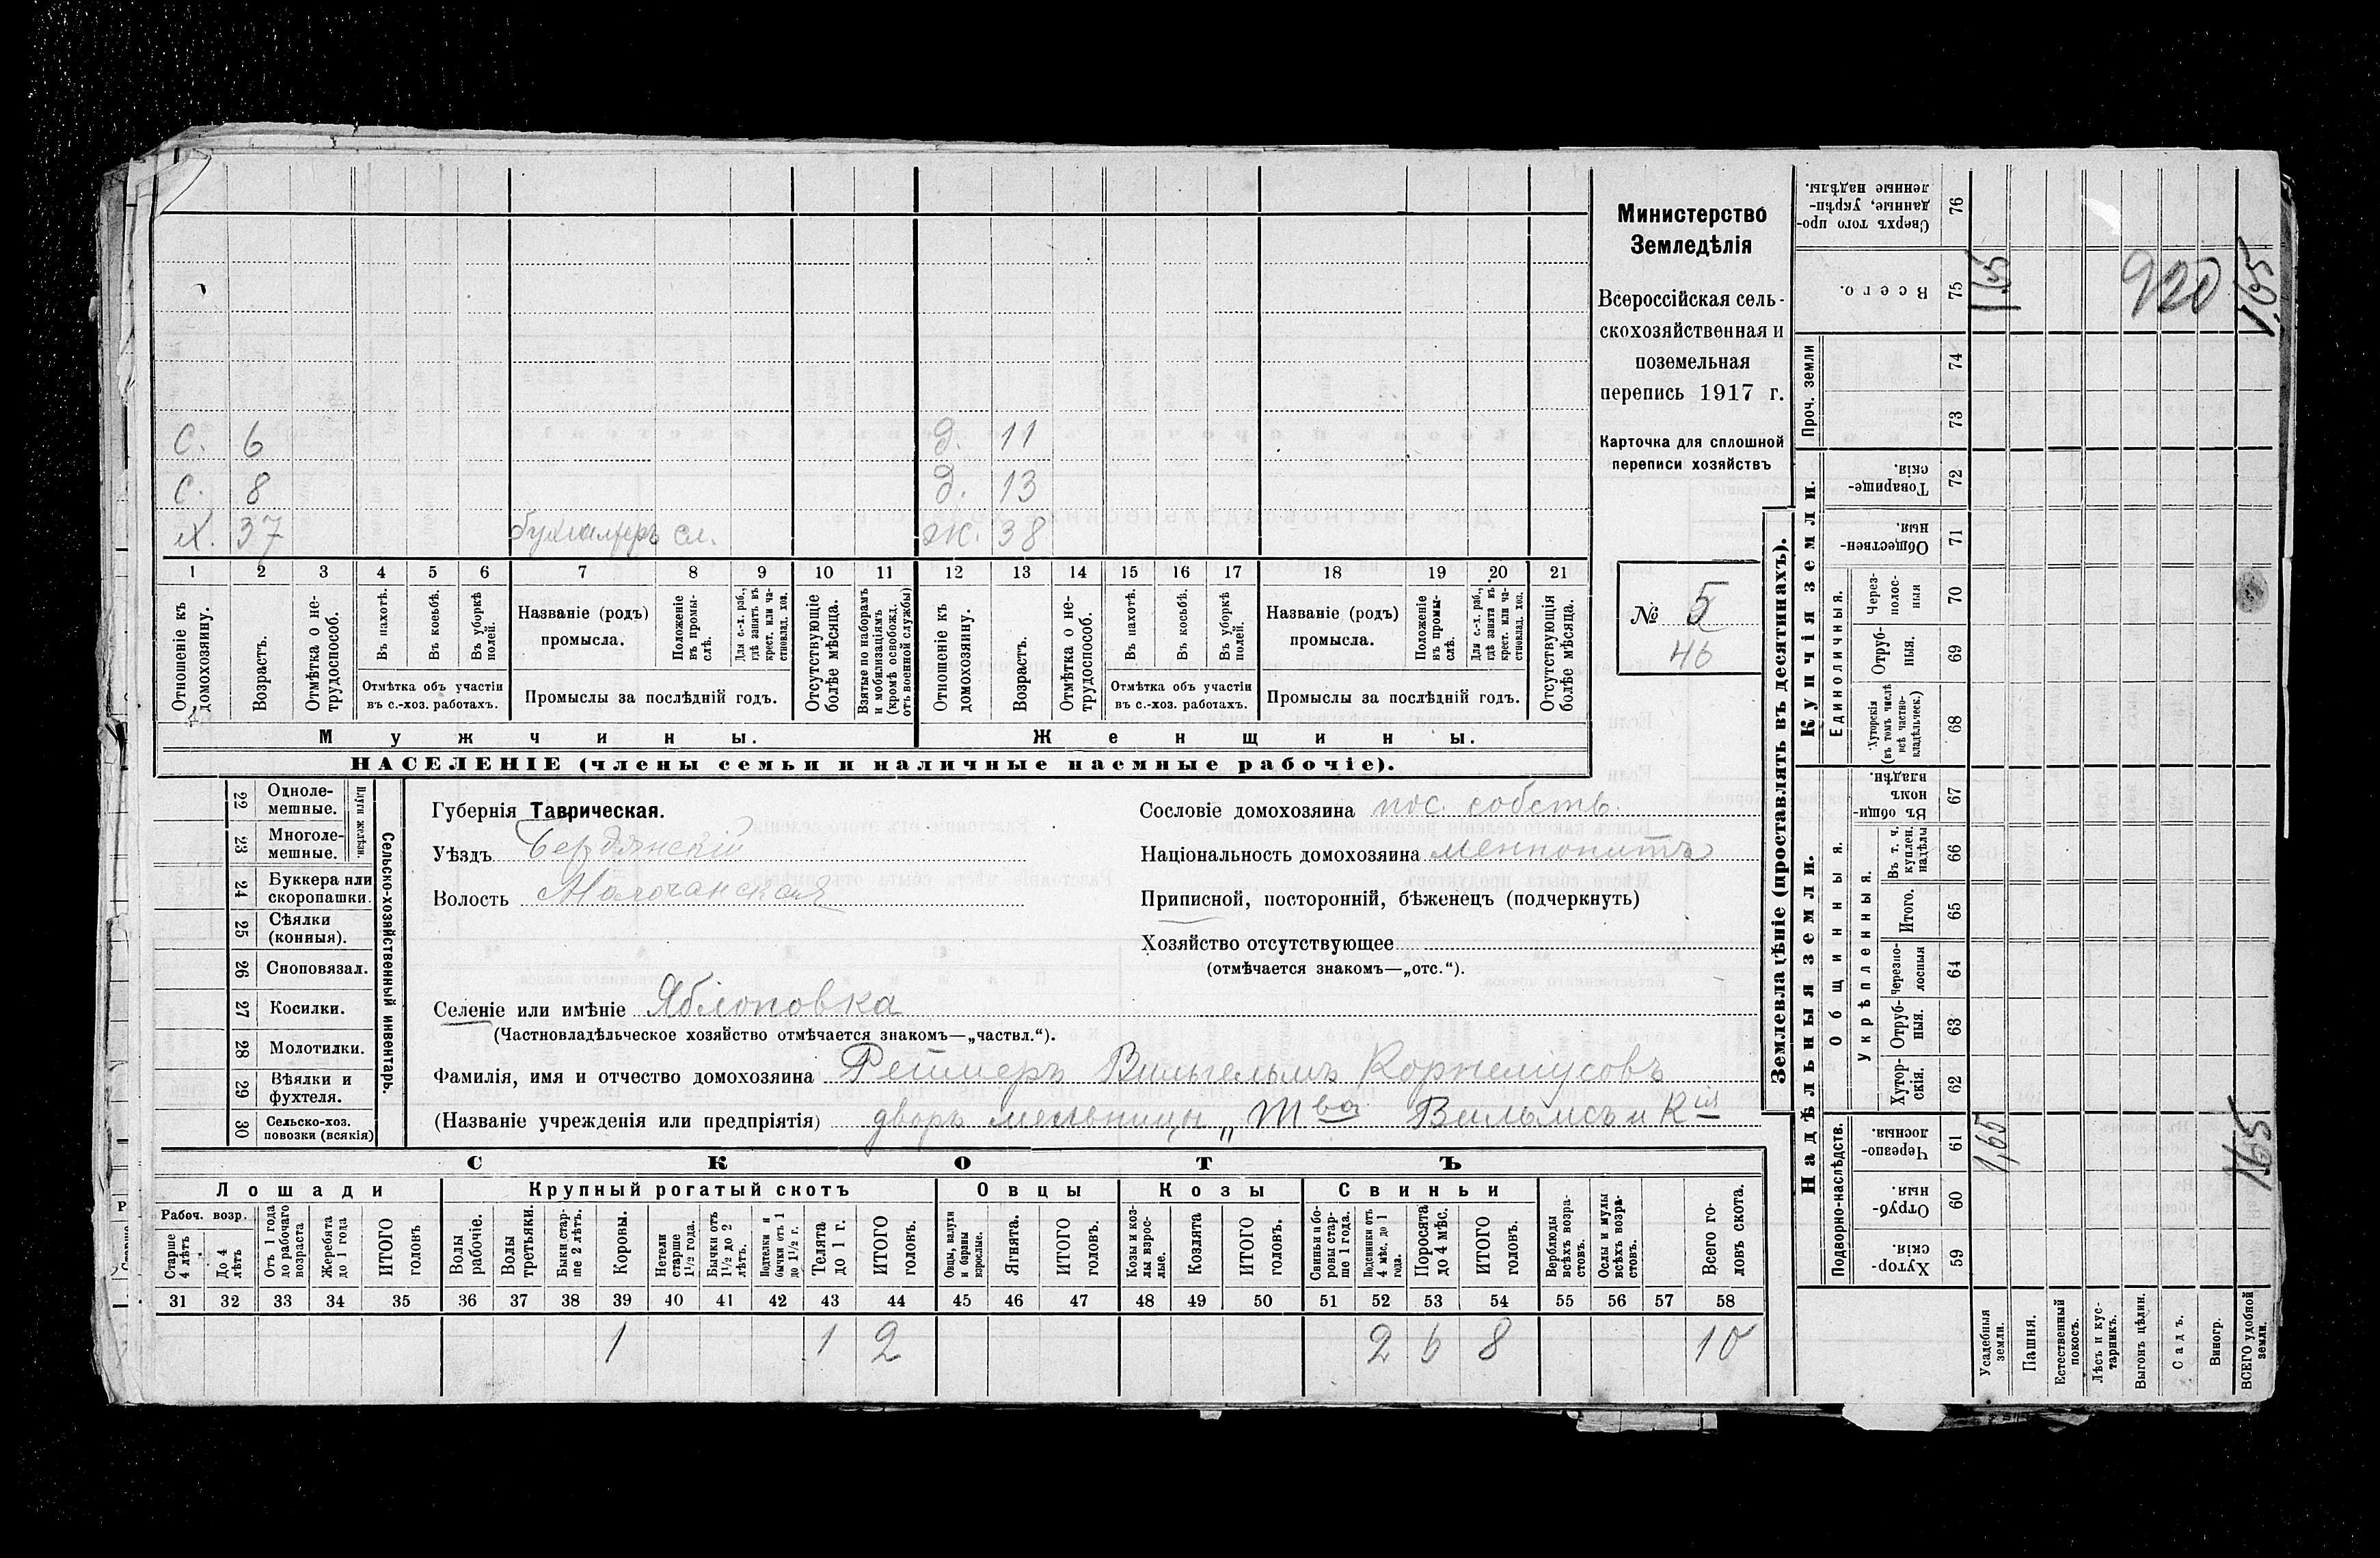 С. 6 д. 11
С. 8 д. 13
х. 37 бухгалтеръ сл. ж. 38
1 2 3 4 5 6 7 8 9 10 11 12 13 14 15 16 17 18 19 20 21
Отношеніе къ домохозяину.
Возрастъ.
Отмѣтка о не-трудоспособ.
Въ пахотѣ.
Въ косьбѣ.
Въ уборкѣ полей.
Отмѣтка объ участіи
въ с.-хоз. работахъ.
Названіе (родъ)
промысла.
Положеніе въ промы-слѣ.
Для с.-х. раб., гдѣ занятъ въ крест. или ча-ствовлад. хоз.
Промыслы за послѣдній годъ.
Отсутствующіе болѣе мѣсяца.
Взятые по наборамъ и мобилизаціямъ (кромѣ освобожд. отъ военной службы)
Отношеніе къ домохозяину.
Возрастъ.
Отмѣтка о не-трудоспособ.
Въ пахотѣ.
Въ косьбѣ.
Въ уборкѣ полей.
Отмѣтка объ участіи
въ с.-хоз. работахъ.
Названіе (родъ)
промысла.
Положеніе въ промы-слѣ.
Для с.-х. раб., гдѣ занята въ крест. или ча-ствовлад. хоз.
Промыслы за послѣдній годъ.
Отсутствующія болѣе мѣсяца.
Мужчины.
Женщины.
НАСЕЛЕНІЕ (члены семьи и наличные наемные рабочіе).
Министерство
Земледѣлія
Всероссійская сель-
скохозяйственная и
поземельная
перепись 1917 г.
Карточка для сплошной
переписи хозяйствъ
№ 5
46
22 Однолемешные.
23 Многолемешные.
Плуги желѣзн.
24 Буккера или скоропашки.
25 Сѣялки (конныя).
26 Сноповязал.
27 Косилки.
28 Молотилки.
29 Вѣялки и фухтеля.
30 Сельско-хоз. повозки (всякія)
Сельско-хозяйственный инвентарь.
Губернія Таврическая.
Уѣздъ Бердянскій
Волость Молочанская
Селеніе или имѣніе Яблоновка
(Частновладѣльческое хозяйство отмѣчается знакомъ—„частвл.“).
Фамилія, имя и отчество домохозяина Реймеръ Вильгельмъ Корнеліусовъ
(Названіе учрежденія или предпріятія) дворъ мельницы „Тва Вильмсъ и Кія
Сословіе домохозяина пос. собств.
Національность домохозяина меннонитъ
Приписной, посторонній, бѣженецъ (подчеркнуть)
Хозяйство отсутствующее
(отмѣчается знакомъ—„отс.“).
СКОТЪ
Лошади
Крупный рогатый скотъ
Овцы
Козы
Свиньи
Рабоч. возр.
Старше 4 лѣтъ
До 4 лѣтъ
Отъ 1 года до рабочаго возраста
Жеребята до 1 года
ИТОГО головъ
Волы рабочіе.
Волы третьяки.
Быки стар-ше 2 лѣтъ.
Коровы.
Нетели старше 1½ года.
Бычки отъ 1½ до 2 лѣтъ.
Подтелки и бычки отъ 1 до 1½ г.
Телята до 1 г.
ИТОГО головъ.
Овцы, валухи и бараны взрослые.
Ягнята.
ИТОГО головъ.
Козы и коз-лы взрос-лые.
Козлята
ИТОГО головъ.
Свиньи и бо-ровы стар-ше 1 года.
Подсвинки отъ 4 мѣс. до 1 года.
Поросята до 4 мѣс.
ИТОГО головъ.
Верблюды всѣхъ возра-стовъ.
Ослы и мулы всѣхъ возра-стовъ.
Всего го-ловъ скота.
31 32 33 34 35 36 37 38 39 40 41 42 43 44 45 46 47 48 49 50 51 52 53 54 55 56 57 58
1 1 2 2 6 8 10
Землевладѣніе (проставлять въ десятинахъ).
Надѣльныя земли.
Купчія земли.
Проч. земли
Подворно-наслѣдств.
Общинныя.
Укрѣпленныя.
Единоличныя.
76 Сверхъ того про-данные, укрѣп-ленные надѣлы.
75 Всего.
74
73
72 Товарище-скія.
71 Обществен-ныя.
70 Через-полос-ныя
69 Отруб-ныя.
68 Хуторскія (въ томъ числѣ всѣ частно-владѣльческ.)
67 Въ общи-номъ владѣн.
66 Въ т. ч. куплен. надѣлы
65 Итого.
64 Черезпо-лосныя
63 Отруб-ныя.
62 Хутор-скія.
61 Черезпо-лосныя.
60 Отруб-ныя.
59 Хутор-скія.
Усадебныя земли.
Пашня.
Естественный покосъ.
Лѣсъ и кус-тарникъ.
Выгонъ цѣлин.
Садъ.
Виногр.
ВСЕГО удобной земли.
1,65
920
1,65
1,65
1,65